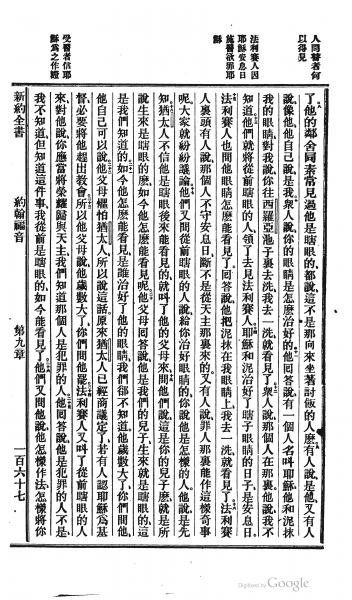 人問瞽者何
以得見
法利賽人因
耶穌安息日
施醫欲罪耶
穌
受醫者信耶
穌爲之作證
了他的鄰舍同素常見過他是瞎眼的都說這不是那向來坐著討飯的人麽有人說是他又有人
說像他他自己說是我衆人說你的眼睛是怎麽治好的他回答說有一個人名叫耶穌他和泥抹
我的眼睛對我說你往西羅亞池子裏去洗我去一洗就看見了衆人說那個人在那裏他說我不
知道他們就將從前瞎眼的人領了去見法利賽人耶穌和泥治好了瞎子眼睛的日子是安息日
法利賽人也問他眼睛怎麽能看見了回答說他把泥抹在我眼睛上我去一洗就看見了法利賽
人裏頭有人說那個人不守安息日斷不是從天主那裏來的又有人說罪人那裏能作這樣奇事
呢大家就紛紛議論他們又問從前瞎眼的人說給你治好眼睛的你說他是怎樣的人他說是先
知猶太人不信他是瞎眼後來能看見的就叫了他的父母來問他們說這是你的兒子麽就是所
說生來是瞎眼的麽如今他怎麽能看見呢他父母回答說他是我們的兒子生來就是瞎眼的這
是我們知道的如今他怎麽能看見是誰治好了他的眼睛我們都不知道他歲數大了你們問他
他自己可以說他父母懼怕猶太人所以說這話原來猶太人已經商議定了若有人認耶穌爲基
督必要將他趕出敎會所以他父母說他歲數大了你們問他罷法利賽人又叫了從前瞎眼的人
來對他說你應當將榮耀歸與天主我們知道那個人是犯罪的人他回答說他是犯罪的人不是
我不知道但知道這件事我從前是瞎眼的如今能看見了他們又問他說他怎樣作法怎樣將你
新約全書 約翰福音 第九章 一百六十七
Digitized by Google